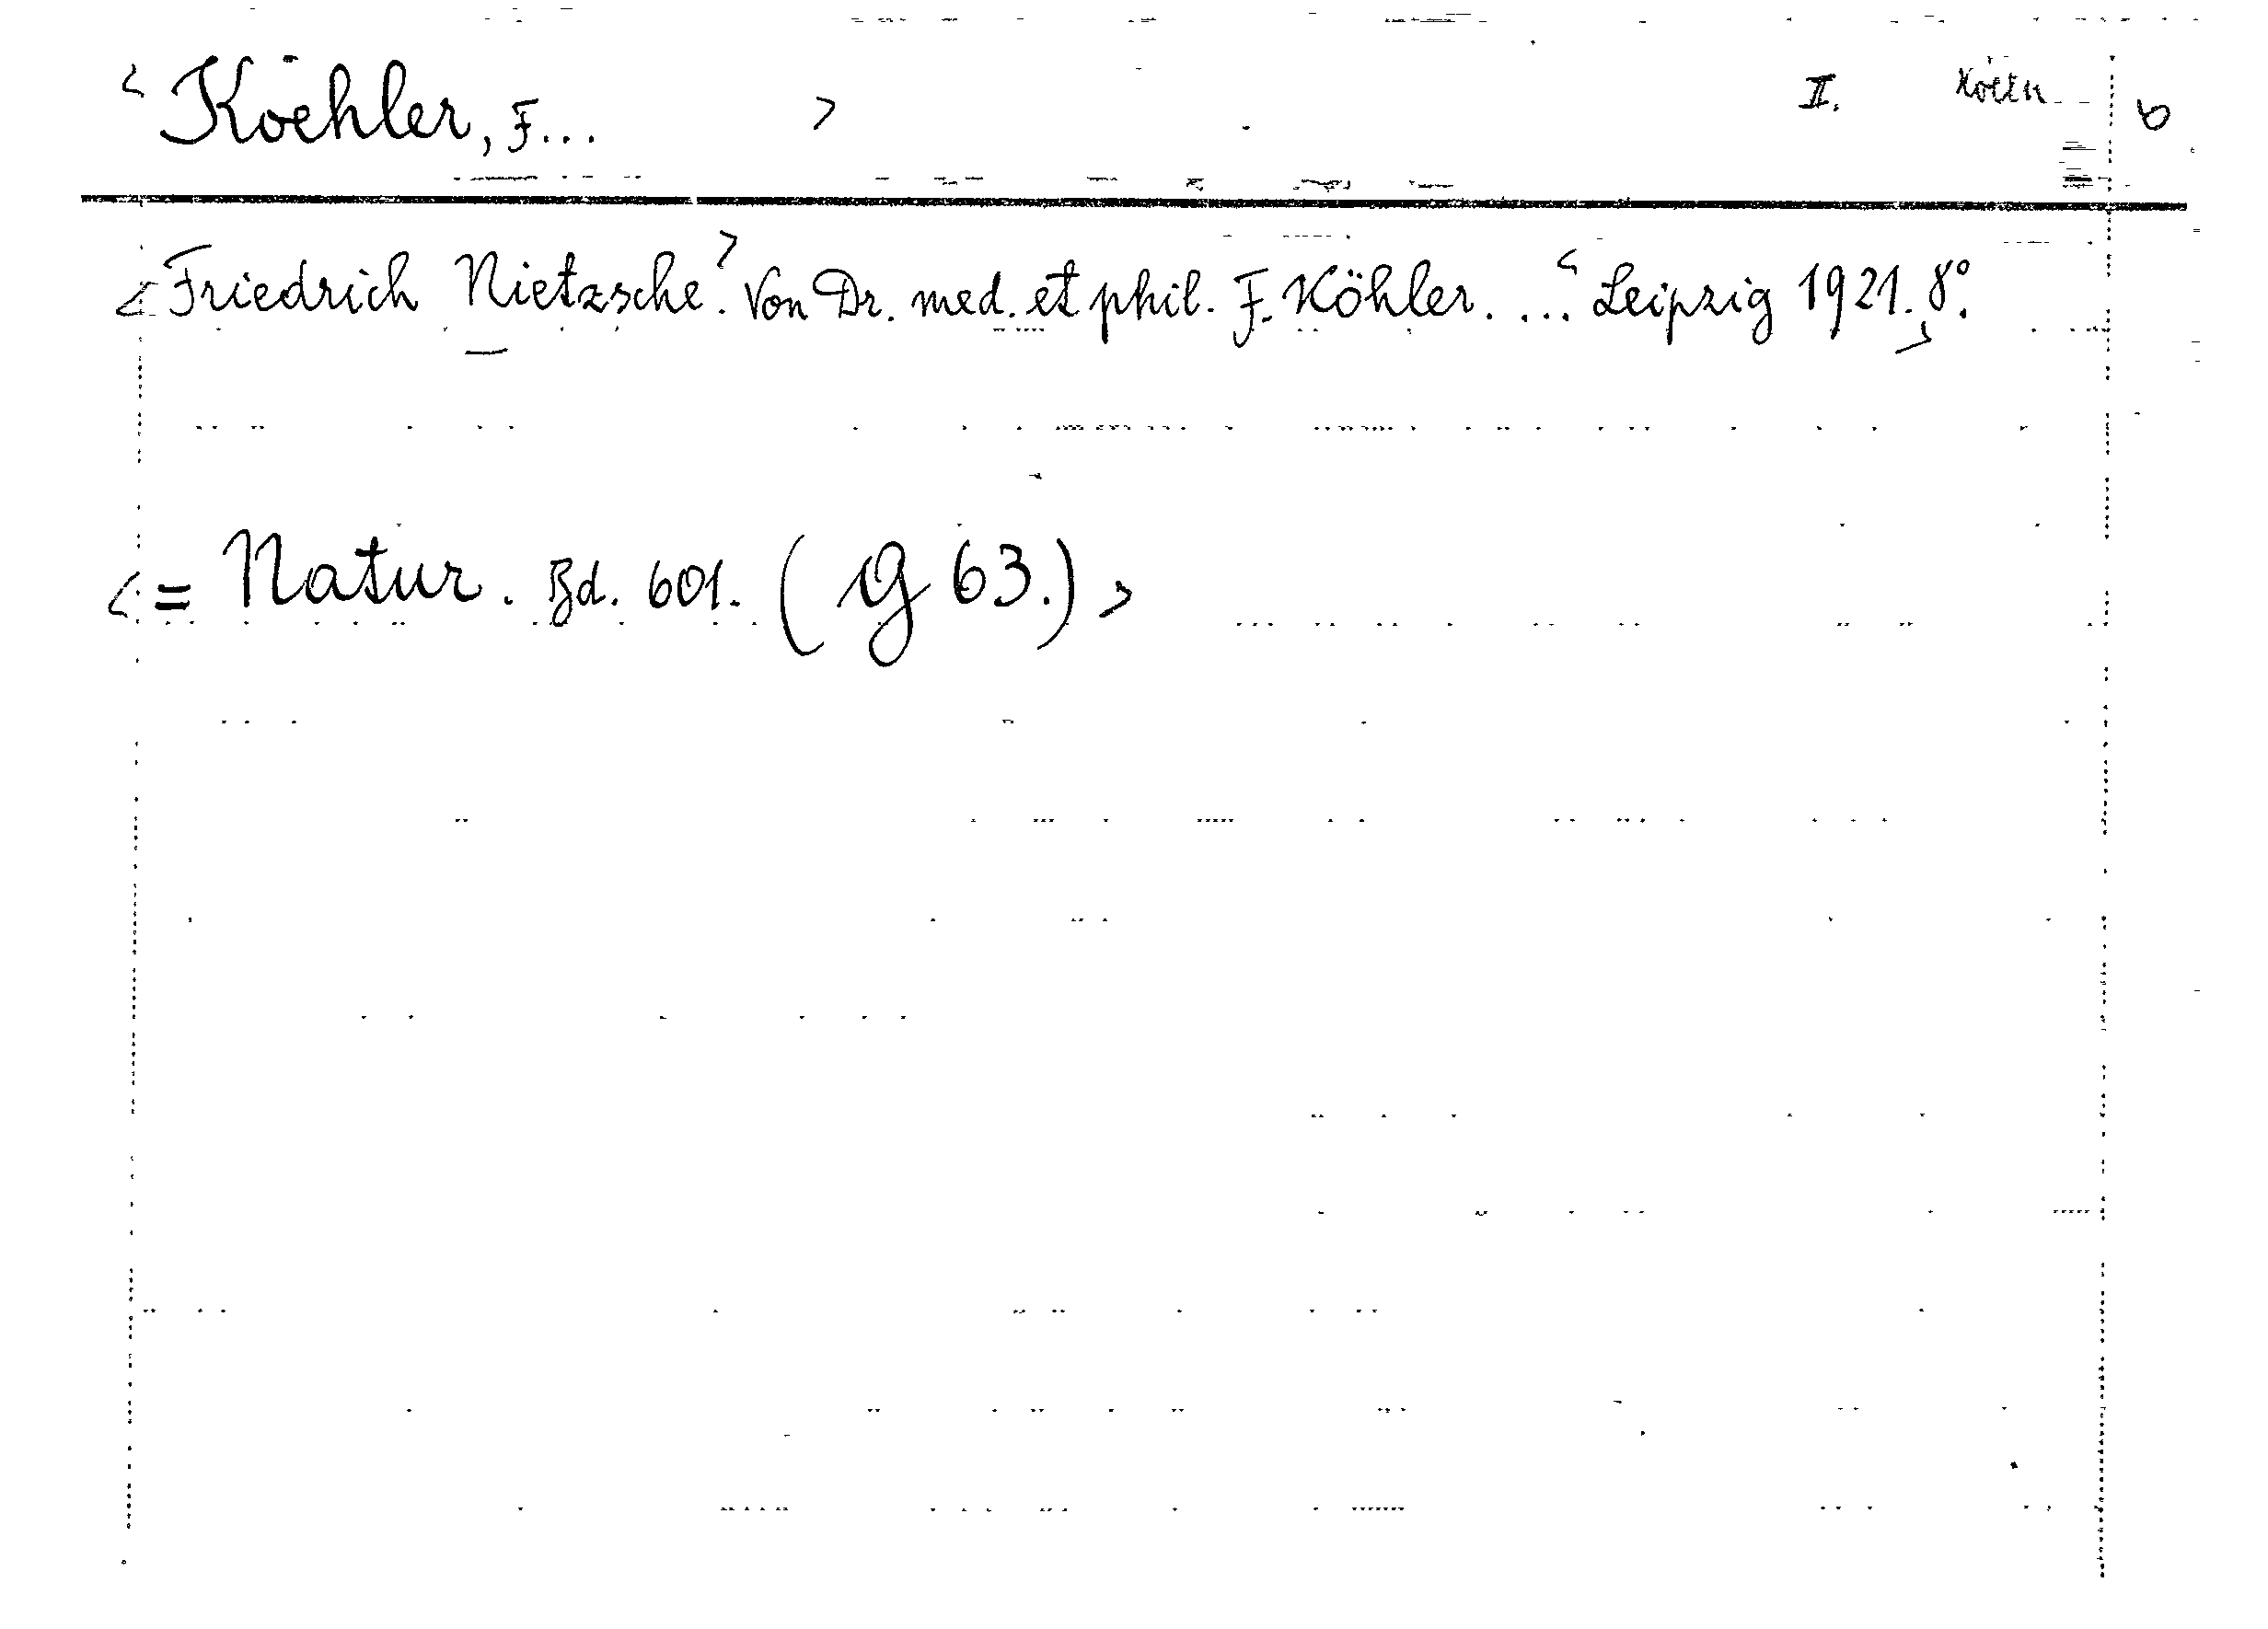 <Koehler, F... > II. b
<Friedrich Nietzsche.> Von Dr. med. et phil. F. Köhler. ... <Leipzig 1921.> 8°.
<= Natur. Bd. 601. (G 63.)>